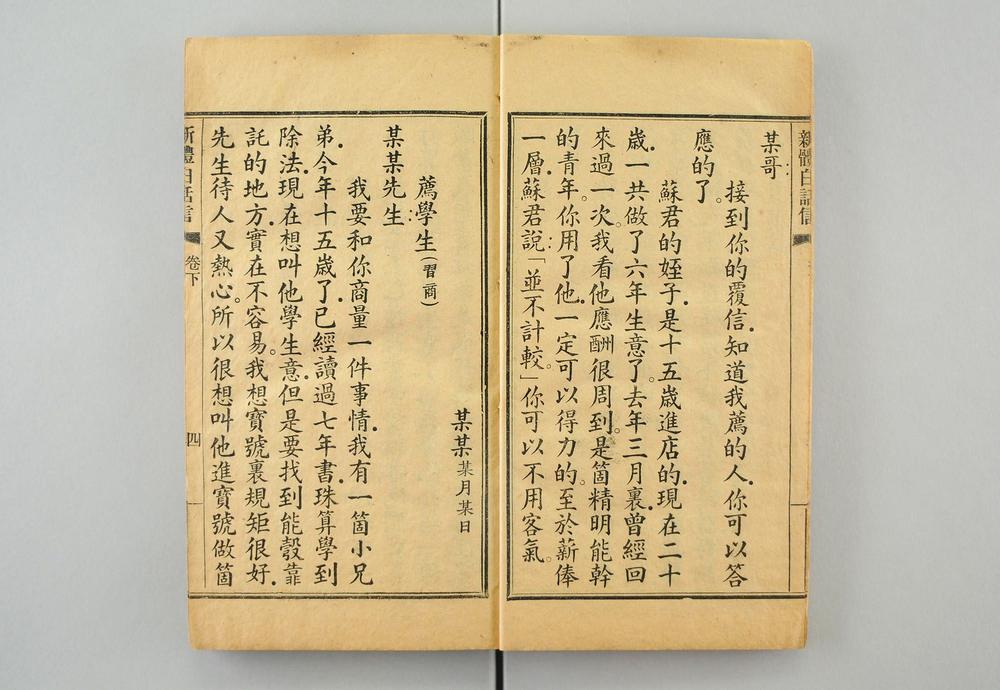 新體白話信
某哥：
接到你的覆信．知道我薦的人．你可以答
應的了。
蘇君的姪子．是十五歲進店的．現在二十
歲．一共做了六年生意了。去年三月裏．曾經回
來過一次。我看他應酬很周到。是箇精明能幹
的青年．你用了他．一定可以得力的。至於薪俸
一層．蘇君說：「並不計較。」你可以不用客氣。
某某某月某日
薦學生（習商）
某某先生：
我要和你商量一件事情．我有一箇小兄
弟．今年十五歲了．已經讀過七年書．珠算學到
除法．現在想叫他學生意．但是要找到能彀靠
託的地方．實在不容易。我想寶號裏規矩很好．
先生待人又熱心。所以很想叫他進寶號做箇
新體白話信 卷下 四